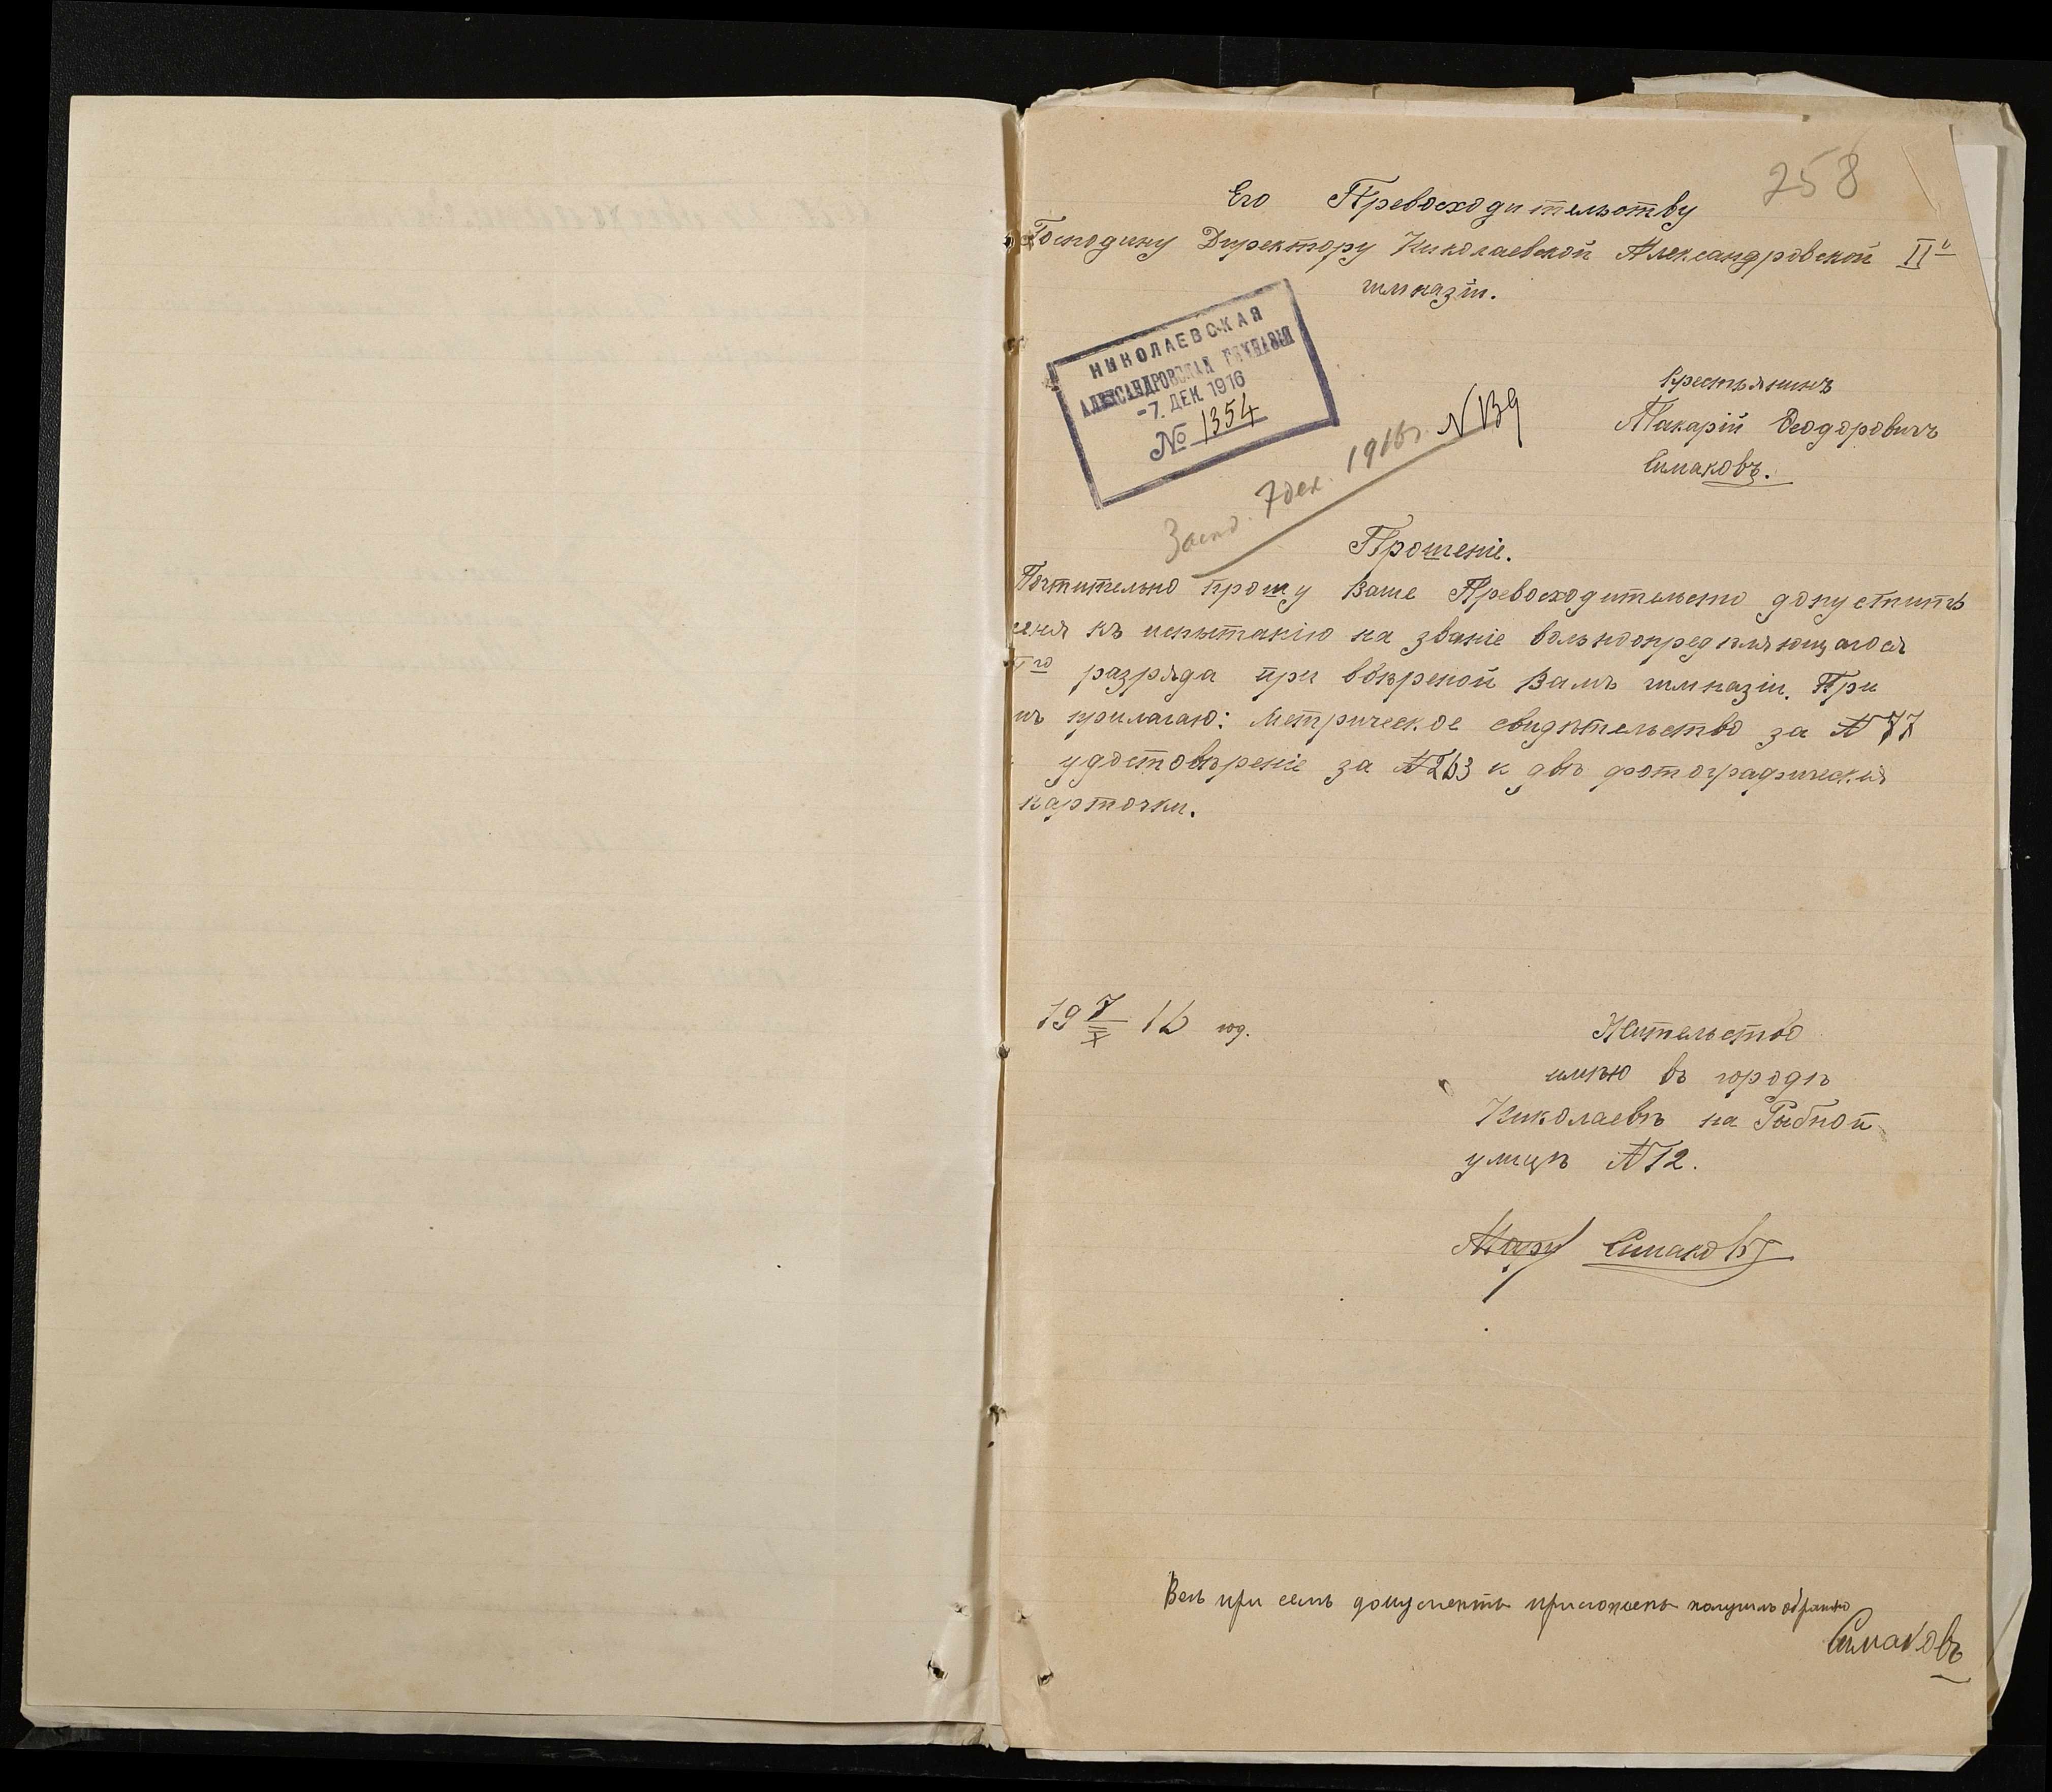 258
Его Превосходительству
Господину Директору Николаевской Александровской IIй
гимназіи.
НИКОЛАЕВСКАЯ
АЛЕКСАНДРОВСКАЯ ГИМНАЗІЯ
-7. ДЕК. 1916
№ 1354
7 дек. 1916 г. N 139
Крестьянинъ
Макарій Феодоровичъ
Симаковъ.
Прошеніе.
Почтительно прошу Ваше Превосходительство допустить
меня къ испытанію на званіе вольноопредѣляющагося
го разряда при ввѣреной Вамъ гимназіи. При
прилагаю: Метрическое свидѣтельство за N 77
удостовѣреніе за N 263 и двѣ фотографическія
карточки.
19 7/X 16 год.
Жительство
имѣю въ городѣ
Николаевѣ на Рыбной
улицѣ N 12.
Симаковъ
при семъ документъ получилъ обратно
Симаковъ